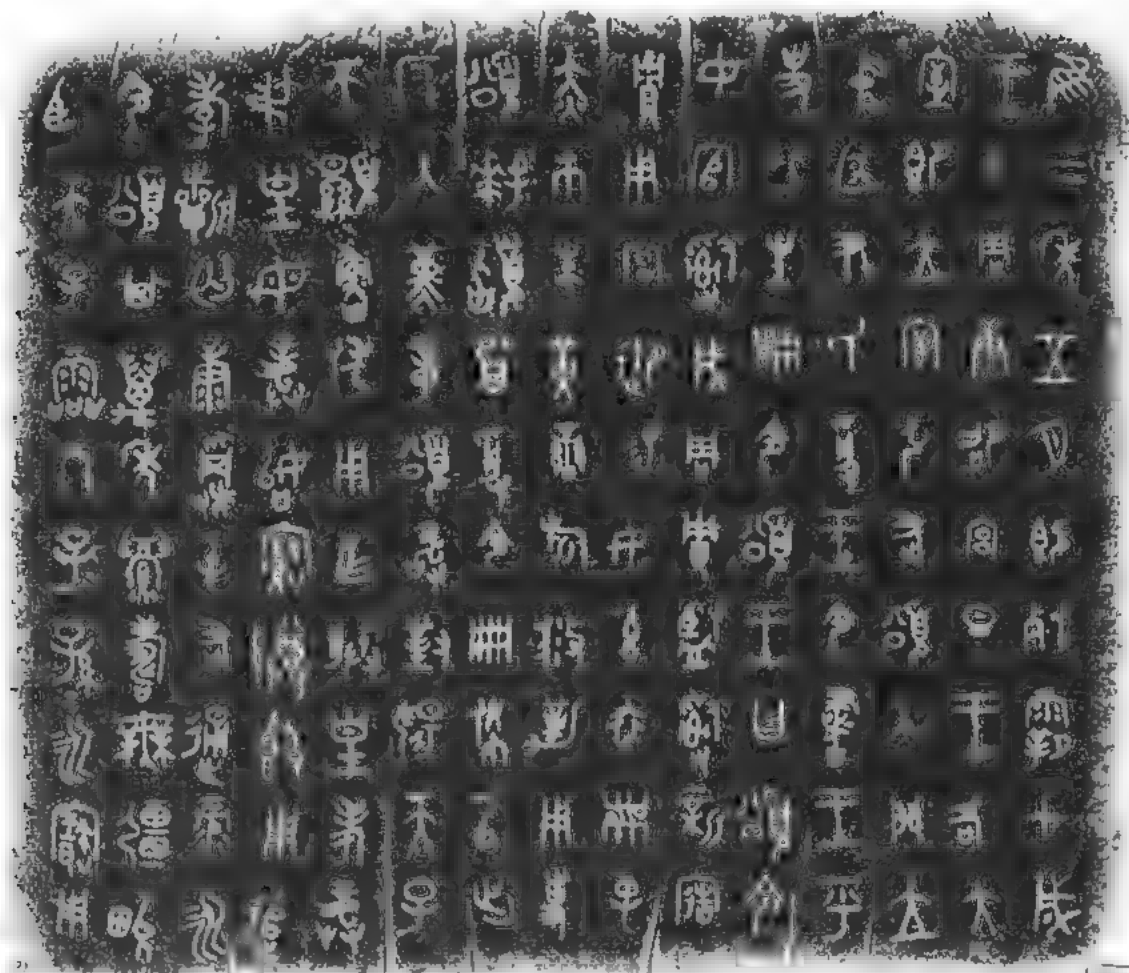 隹三年五月既死霸甲戌
王才周康卲宮旦王各大
室即立宰弘右頌入門立
中廷尹氏受王令書王乎
史虢生冊令頌王曰頌令
女官𤔲成周貯監𤔲新造
貯用宮御易女玄衣黹屯
赤巿朱黃䜌旂攸勒用事
頌拜𩒨首受令冊佩以出
反入堇章頌敢對揚天子
不顯魯休用乍朕皇考龏
弔皇母龏始寶尊鼎用追
孝𣄨匄康𠱠屯右通彔永
令頌其萬年眉壽無彊畯
臣天子霝冬子=孫=永寶用